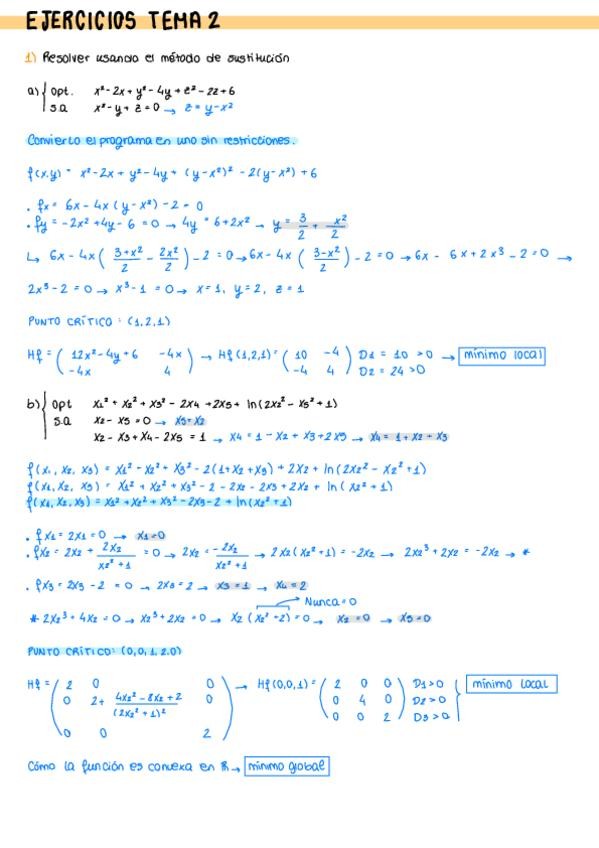 EJERCICIOS TEMA 2
1) Resolver usando el método de sustitución
a) { Opt. x² - 2x + y² - 4y + z² - 2z + 6
s.a x² - y + z = 0 → z = y - x²
Convierto el programa en uno sin restricciones.
f(x,y) = x² - 2x + y² - 4y + (y - x²)² - 2(y - x²) + 6
· fx = 6x - 4x(y - x²) - 2 = 0
· fy = -2x² + 4y - 6 = 0 → 4y = 6 + 2x² → y = 3/2 + x²/2
↳ 6x - 4x (3+x²/2 - 2x²/2) - 2 = 0 → 6x - 4x (3-x²/2) - 2 = 0 → 6x - 6x + 2x³ - 2 = 0 →
2x³ - 2 = 0 → x³ - 1 = 0 → x = 1, y = 2, z = 1
PUNTO CRÍTICO: (1,2,1)
Hf = (12x² - 4y + 6 -4x / -4x 4) → Hf(1,2,1) = (10 -4 / -4 4) D1 = 10 > 0 D2 = 24 > 0 → mínimo local
b) { Opt x1² + x2² + x3² - 2x4 + 2x5 + ln(2x2² - x5² + 1)
s.a x2 - x5 = 0 → x5 = x2
x2 - x3 + x4 - 2x5 = 1 → x4 = 1 - x2 + x3 + 2x5 → x4 = 1 + x2 + x3
f(x1, x2, x3) = x1² + x2² + x3² - 2(1 + x2 + x3) + 2x2 + ln(2x2² - x2² + 1)
f(x1, x2, x3) = x1² + x2² + x3² - 2 - 2x2 - 2x3 + 2x2 + ln(x2² + 1)
f(x1, x2, x3) = x1² + x2² + x3² - 2x3 - 2 + ln(x2² + 1)
· fx1 = 2x1 = 0 → x1 = 0
· fx2 = 2x2 + 2x2/x2² + 1 = 0 → 2x2 = -2x2/x2² + 1 → 2x2(x2² + 1) = -2x2 → 2x2³ + 2x2 = -2x2 → *
· fx3 = 2x3 - 2 = 0 → 2x3 = 2 → x3 = 1 → x4 = 2
Nunca = 0
* 2x2³ + 4x2 = 0 → x2³ + 2x2 = 0 → x2 (x2² + 2) = 0 → x2 = 0 → x5 = 0
PUNTO CRÍTICO: (0,0,1,2,0)
Hf = (2 0 0 / 0 2 + 4x2² - 8x2 + 2/(2x2² + 1)² 0 / 0 0 2) → Hf(0,0,1) = (2 0 0 / 0 4 0 / 0 0 2) D1 > 0 D2 > 0 D3 > 0 mínimo local
Cómo la función es convexa en ℝ → mínimo global